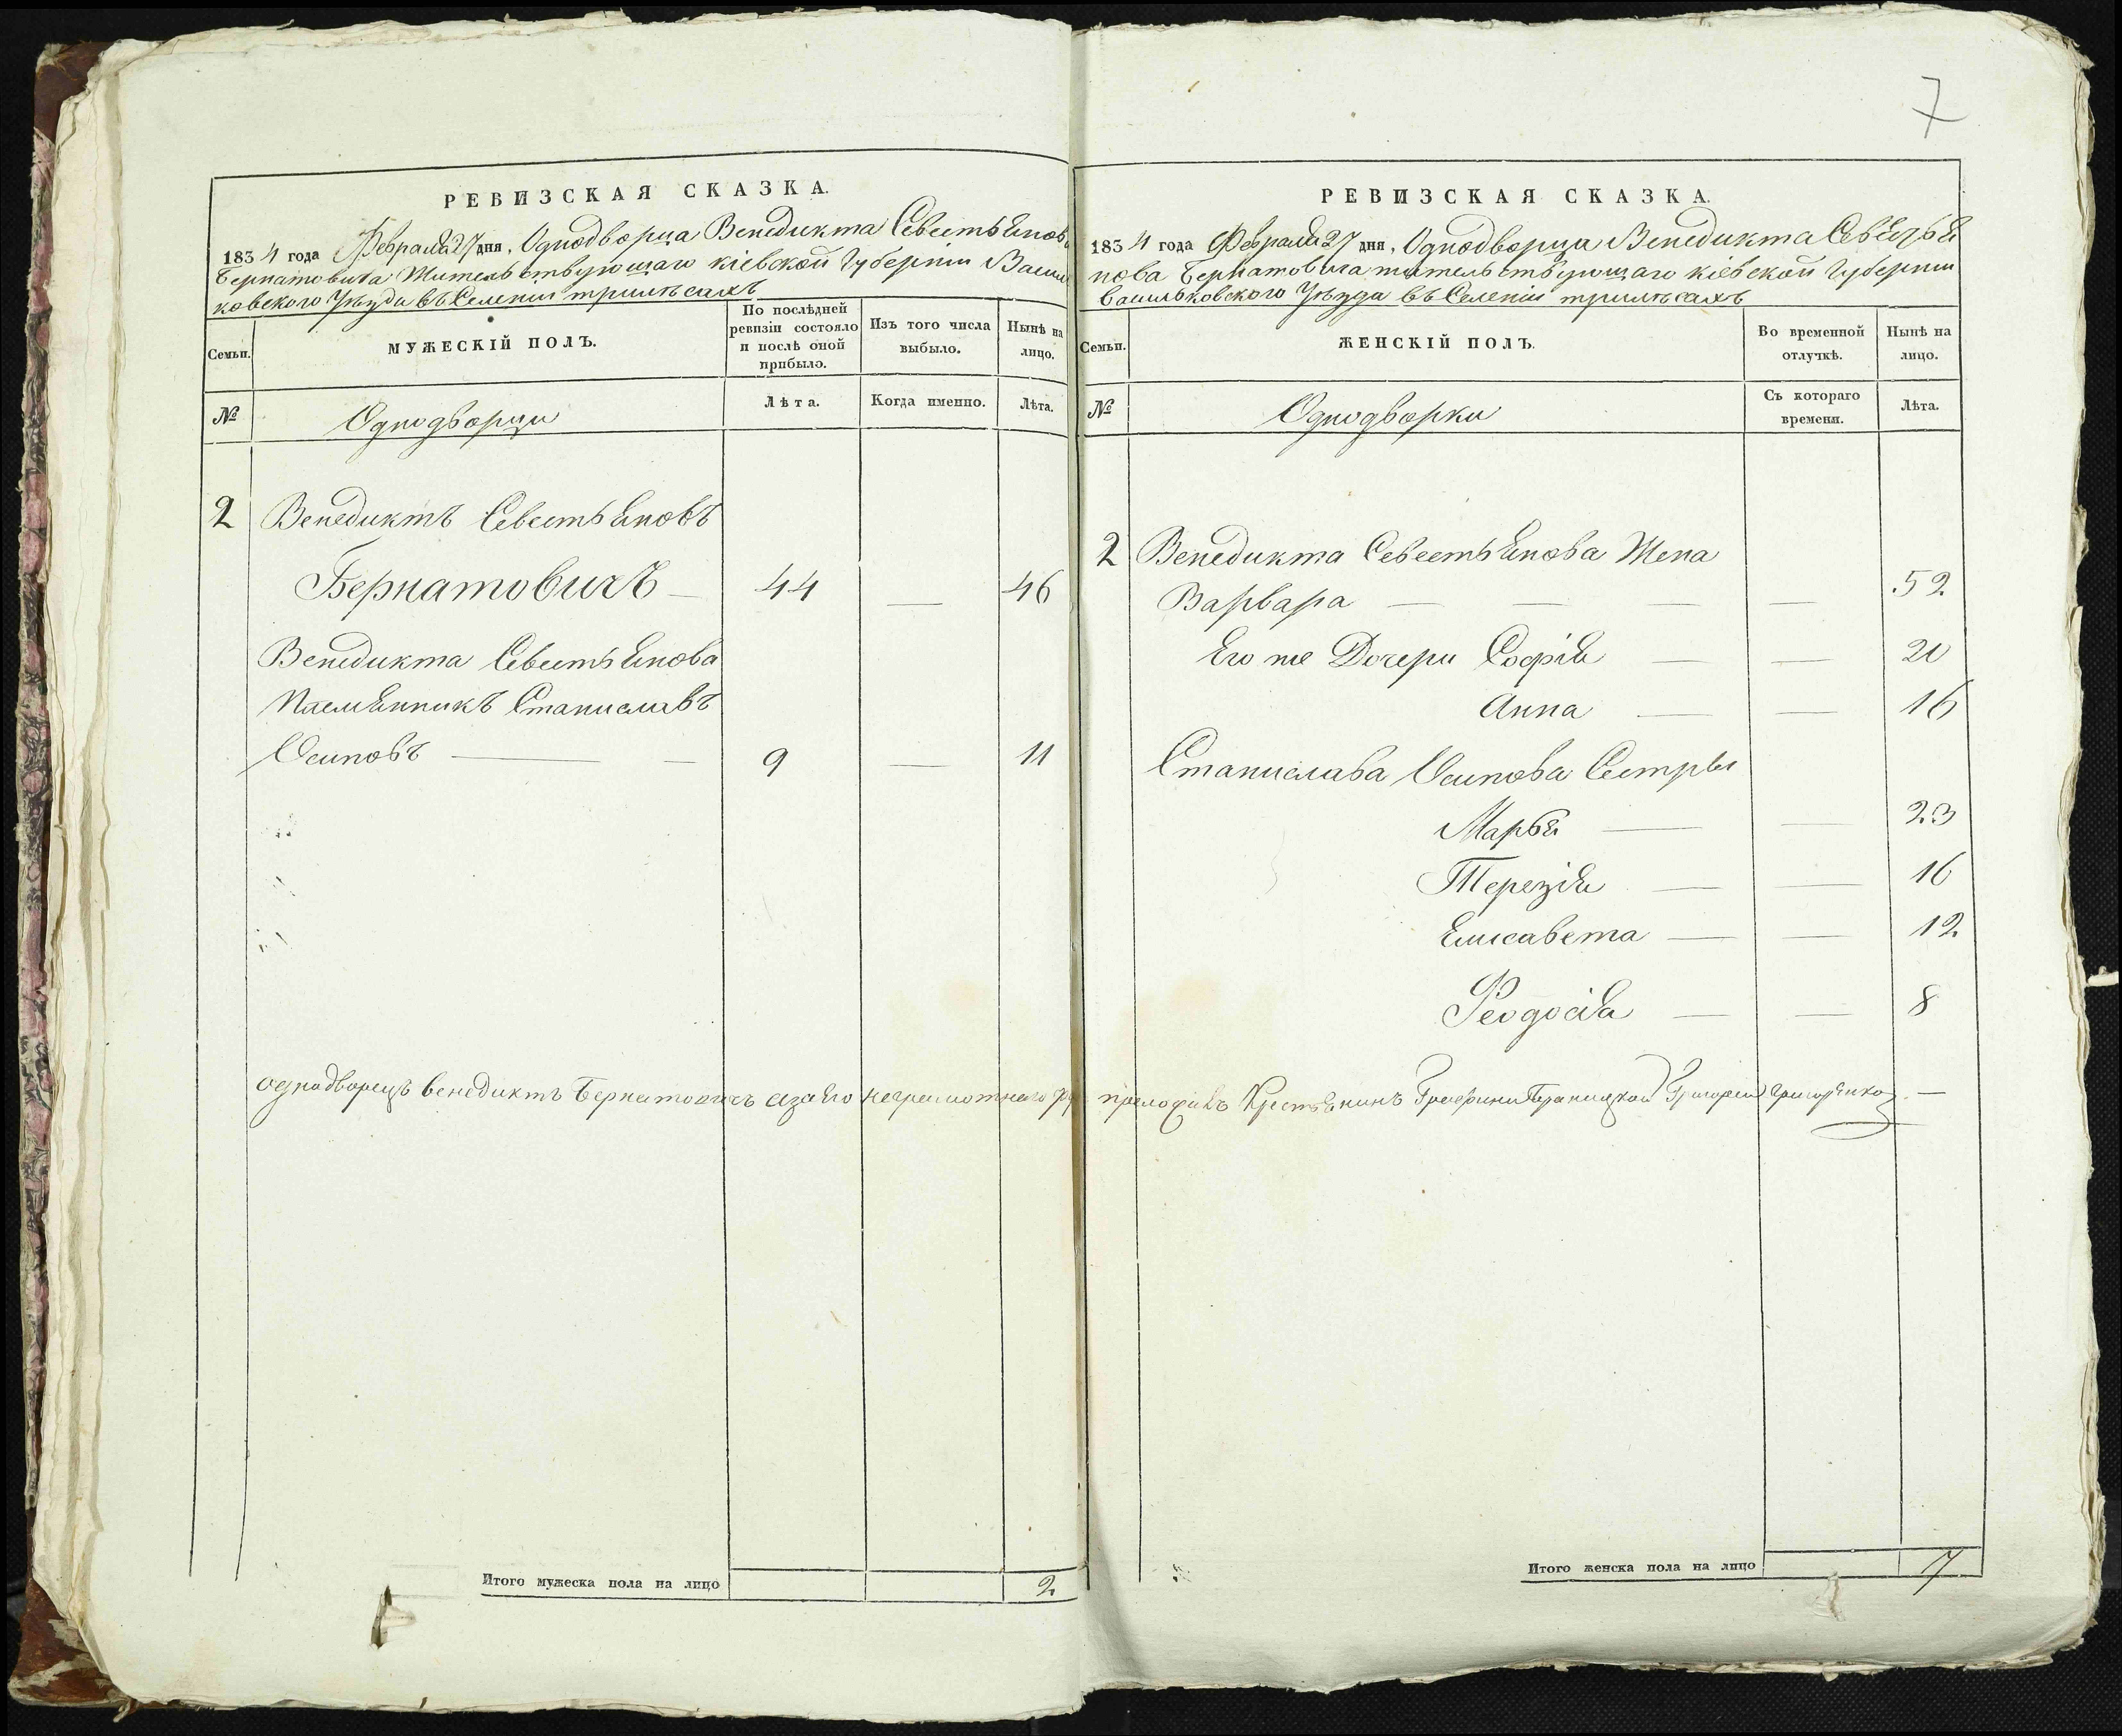 7
РЕВИЗСКАЯ СКАЗКА.
1834 года Февраля 27 дня, Однодворца Венедикта Севестьянова
Бернатовича Жительствующаго Кіевской Губерніи Василь
ковского Уѣзда въ Селеніи трилѣсахъ
Семьи.
МУЖЕСКІЙ ПОЛЪ.
По послѣдней ревизіи состояло и послѣ оной прибыло.
Изъ того числа выбыло.
Нынѣ на лицо.
№
Однодворцы
Лѣта.
Когда именно.
Лѣта.
2 Венедиктъ Севестьяновъ
Бернатовичъ — 44 — 46
Венедикта Севестьянова
Племянникъ Станиславъ
Осиповъ — — 9 — 11
однодворецъ венедиктъ Бернатовичъ азаего неграмотнаго
Итого мужеска пола на лицо 2
РЕВИЗСКАЯ СКАЗКА.
1834 года Февраля 27 дня, Однодворца Венедикта Севестья
нова Бернатовича жительствующаго Кіевской Губерніи
Васильковского Уѣзда въ Селеніи трилѣсахъ
Семьи.
ЖЕНСКІЙ ПОЛЪ.
Во временной отлучкѣ.
Нынѣ на лицо.
№
Однодворки
Съ котораго времени.
Лѣта.
2 Венедикта Севестьянова Жена
Варвара — — — — 52
Его же Дочери Софія — — 20
Анна — — 16
Станислава Осипова Сестры
Марья — — 23
Терезія — — 16
Елисавета — — 12
Феодосія — — 8
Крестьянинъ Графини Браницкой Григорей
Итого женска пола на лицо 7